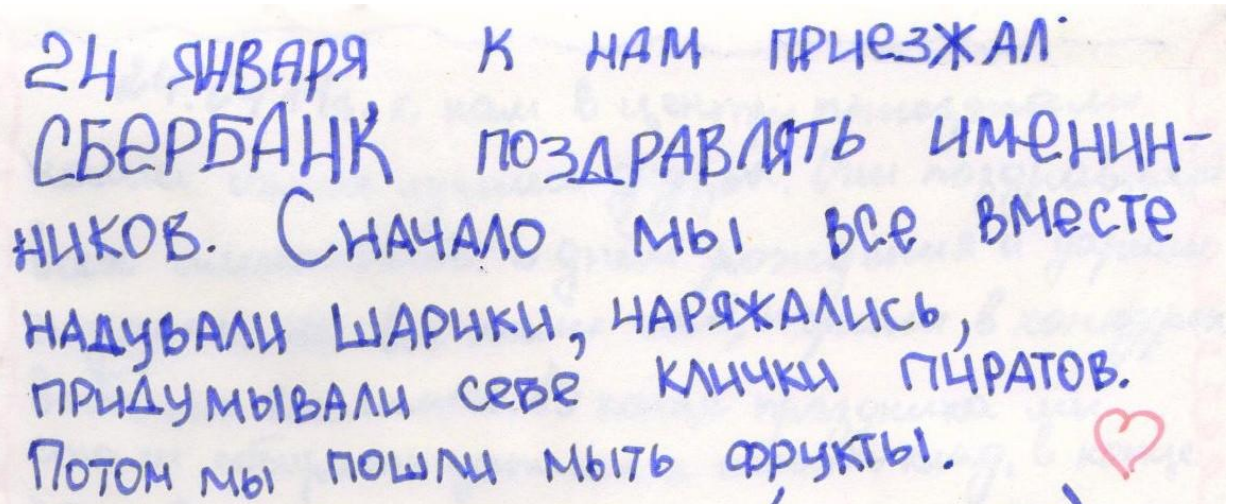 24 ЯНВАРЯ К НАМ ПРИЕЗЖАЛ
СБЕРБАНК ПОЗДРАВЛЯТЬ ИМЕНИН-
НИКОВ. СНАЧАЛО МЫ ВСЕ ВМЕСТЕ
НАДУВАЛИ ШАРИКИ, НАРЯЖАЛИСЬ,
ПРИДУМЫВАЛИ СЕБЕ КЛИЧКИ ПИРАТОВ.
ПОТОМ МЫ ПОШЛИ МЫТЬ ФРУКТЫ.